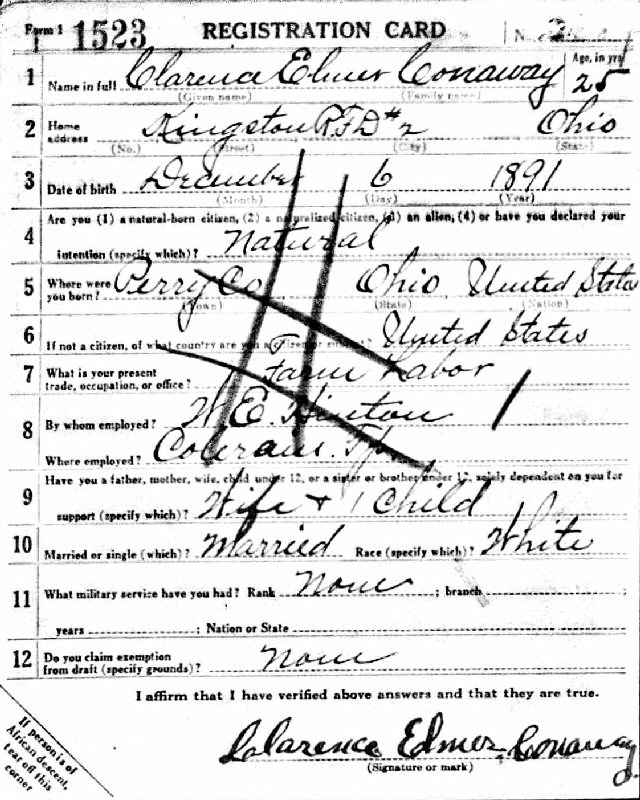 Form 1 1523 REGISTRATION CARD No.
1 Name in full Clarence Elmer Conaway Age, in yrs 25
(Given name) (Family name)
2 Home address Kingston RFD #2 Ohio
(No.) (Street) (City) (State)
3 Date of birth December 6 1891
(Month) (Day) (Year)
Are you (1) a natural-born citizen, (2) a naturalized citizen, (3) an alien, (4) or have you declared your
4 intention (specify which)? Natural
5 Where were you born? Perry Co Ohio United States
(Town) (State) (Nation)
6 If not a citizen, of what country are you a citizen or subject? United States
7 What is your present trade, occupation, or office? Farm Labor
8 By whom employed? W. E. Hinton
Where employed? Colerain Tp
Have you a father, mother, wife, child under 12, or a sister or brother under 12, solely dependent on you for
9 support (specify which)? Wife + 1 Child
10 Married or single (which)? Married Race (specify which)? White
11 What military service have you had? Rank None ; branch
years ; Nation or State
12 Do you claim exemption from draft (specify grounds)? None
I affirm that I have verified above answers and that they are true.
If person is of
African descent,
tear off this
corner
Clarence Elmer Conaway
(Signature or mark)